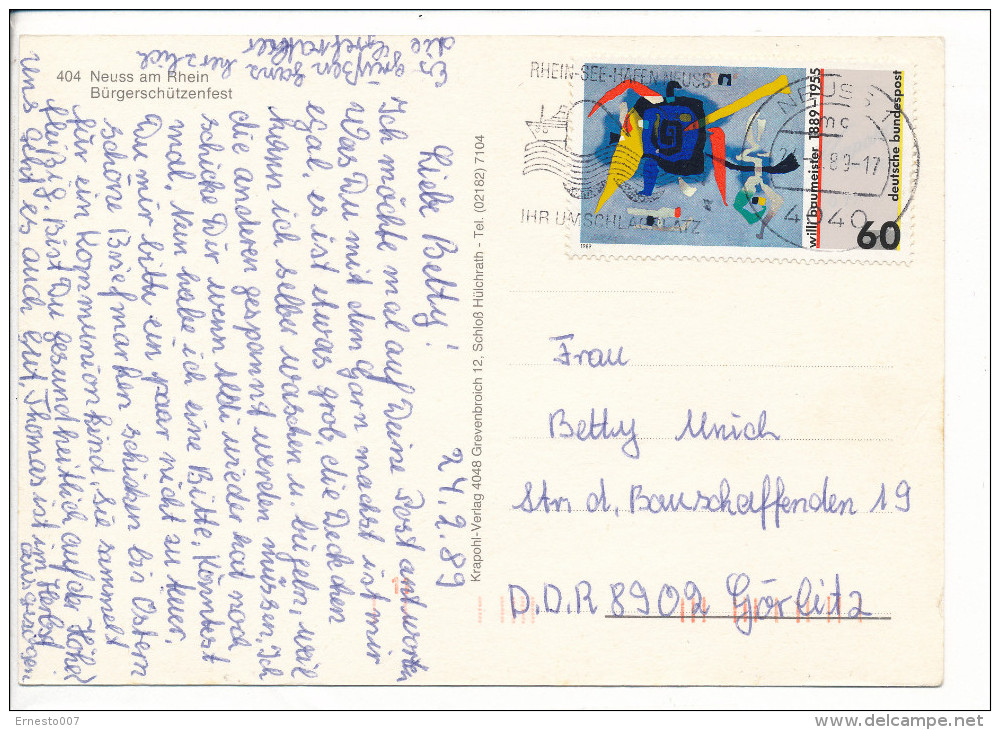 404 Neuss am Rhein
Bürgerschützenfest
24.2.89
Liebe Betty!
Ich möchte mal auf Deine Post antworten
Was Du mit dem Garn machst ist mir
egal, es ist etwas grob, die Deckchen
kann ich selber waschen u. bügeln, weil
die anderen gespannt werden müssen. Ich
schicke Dir wenn wieder hat noch
mal. Nun habe ich eine Bitte, Könntest
Du mir bitte ein paar nicht zu teuer,
schöne Briefmarken schicken bis Ostern
für ein Kommunionkind, sie sammelt
fleißig. Bist Du gesundheitlich auf der Höhe?
uns geht es auch gut, Thomas ist im Herbst
ausgezogen
Es grüßen ganz herzlich
die
Krapohl-Verlag 4048 Grevenbroich 12. Schloß Hülchrath - Tel. (02182) 7104
RHEIN-SEE-HAFEN NEUSS
IHR UMSCHLAGPLATZ
NEUSS
mc
89-17
4040
willi baumeister 1889-1955
deutsche bundespost
60
1989
Frau
Betty Unich
Str. d. Bauschaffenden 19
D.D.R 8909 Görlitz
Ernesto007
delcampe.net